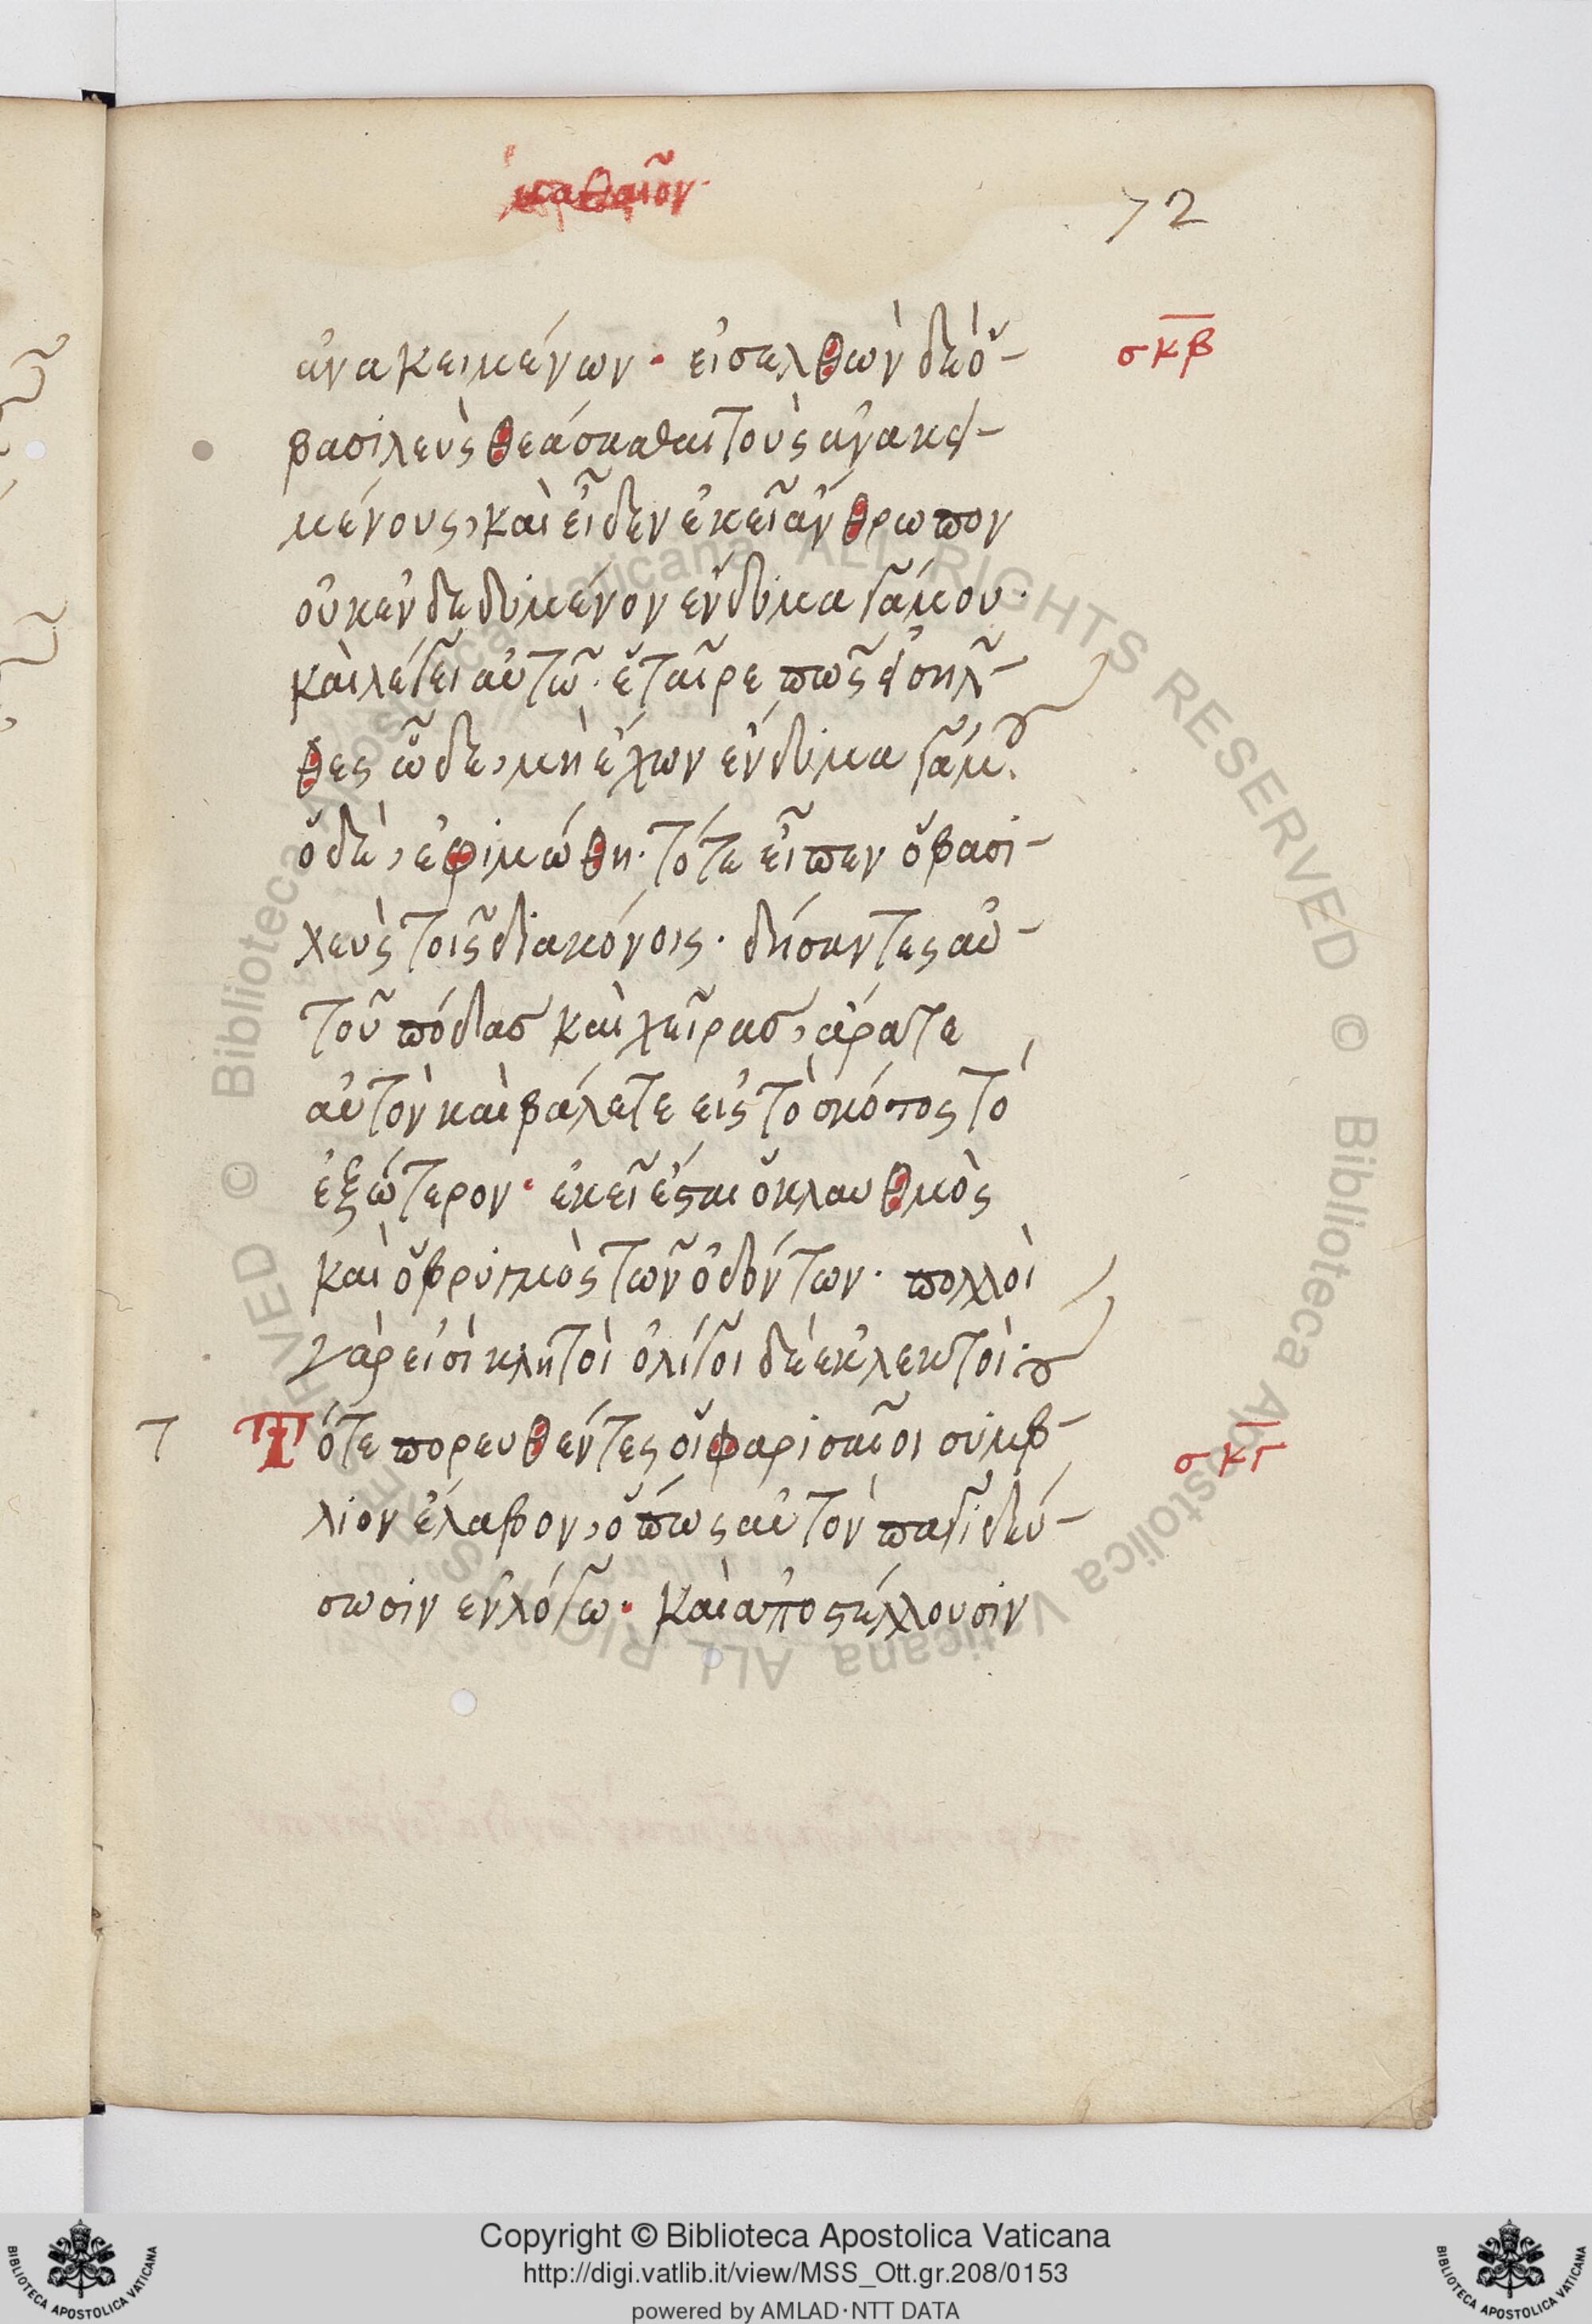 ματθαῖον
72
ἀνακειμένων · εἰσελθὼν δὲ ὁ
σκβ
βασιλεὺς θεάσασθαι τοὺς ἀνακει
μένους, καὶ εἶδεν ἐκεῖ ἄνθρωπον
οὐκ ἐνδεδυμένον ἔνδυμα γάμου ·
καὶ λέγει αὐτῶ · ἑταῖρε πῶς εἰσηλ
θες ὧδε, μὴ ἔχων ἔνδυμα γάμου.
ὁ δὲ, ἐφιμώθη · τότε εἶπεν ὁ βασι
λεὺς τοῖς διακόνοις · δήσαντες αὐ
τοῦ πόδας καὶ χεῖρας, ἄρατε
αὐτὸν καὶ βάλετε εἰς τὸ σκότος τὸ
ἐξώτερον · ἐκεῖ ἔσται ὁ κλαυθμὸς
καὶ ὁ βρυγμὸς τῶν ὀδόντων · πολλοὶ
γάρ εἰσὶ κλητοὶ ὀλίγοι δὲ ἐκλεκτοί :
τ
Τότε πορευθέντες οἱ φαρισαῖοι συμβού
σκγ
λιον ἔλαβον, ὅπως αὐτὸν παγιδεύ
σωσιν ἐν λόγω · καὶ ἀποστέλλουσιν
Copyright © Biblioteca Apostolica Vaticana
http://digi.vatlib.it/view/MSS_Ott.gr.208/0153
powered by AMLAD·NTT DATA